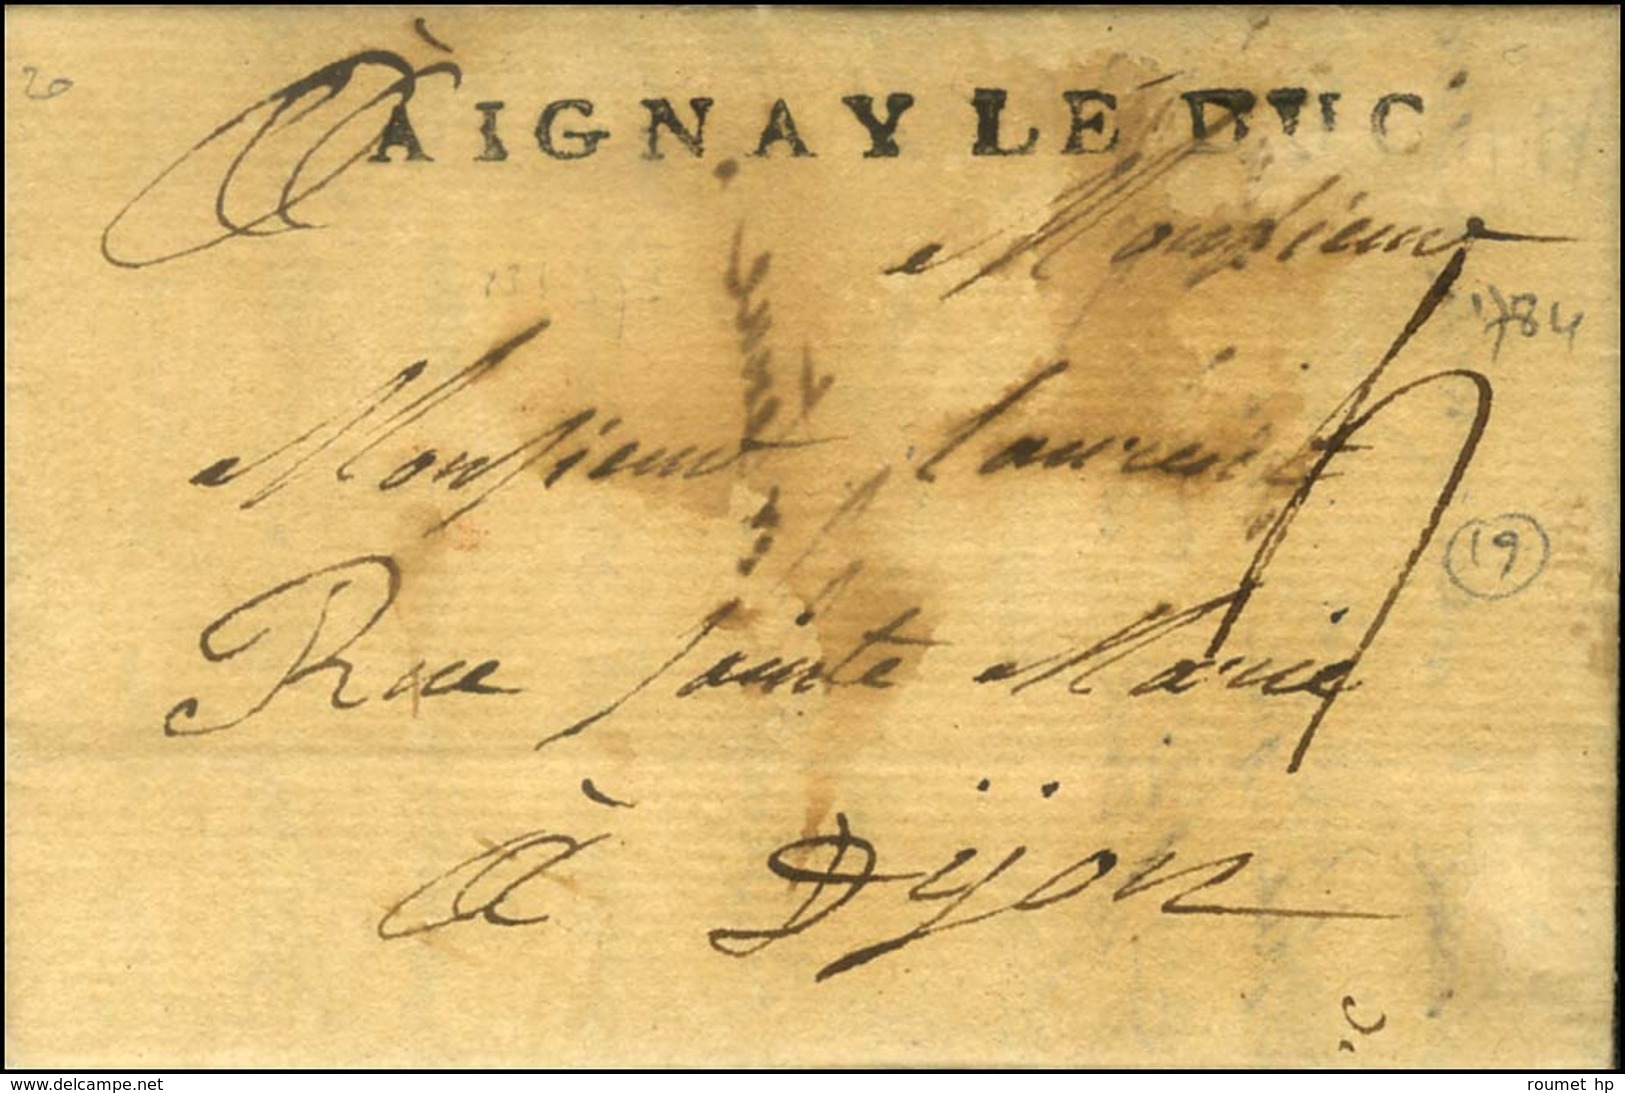 20
À AIGNAY LE DUC
Monsieur
1784
Monsieur Laurent
19
Rue Sainte Marie
à Dijon
www.delcampe.net
roumet hp